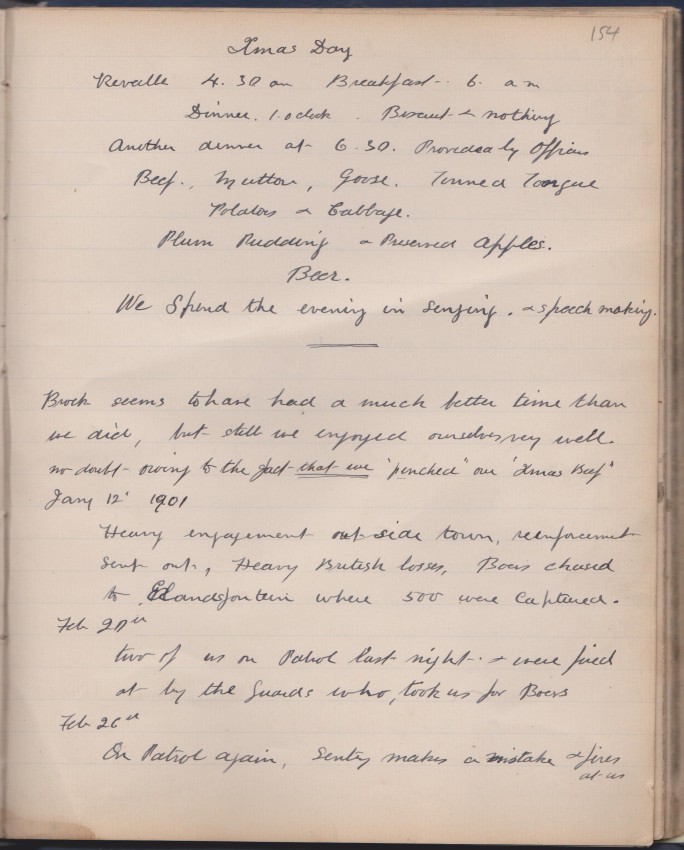 154
Xmas Day
Revalle 4.30 am Breakfast.. 6. am
Dinner. 1. oclock. Biscuit & nothing
Another dinner at 6.30. Provided by Officers
Beef., Mutton, Goose. Tinned Tongue
Potatoes & Cabbage.
Plum Pudding & Preserved Apples.
Beer.
We Spend the evening in Singing. & speech making.
Brock seems to have had a much better time than
we did, but still we enjoyed ourselves very well.
no doubt owing to the fact that we "pinched" our "Xmas Beef"
Jany 12' 1901
Heavy engagement outside town, reinforcement
sent out, Heavy British losses, Boers chased
to Elandsfontein where 500 were Captured.
Feb 20th
two of us on Patrol last night. & were fired
at by the Guards who, took us for Boers
Feb 26th
On Patrol again, Sentry makes a mistake & fires
at us